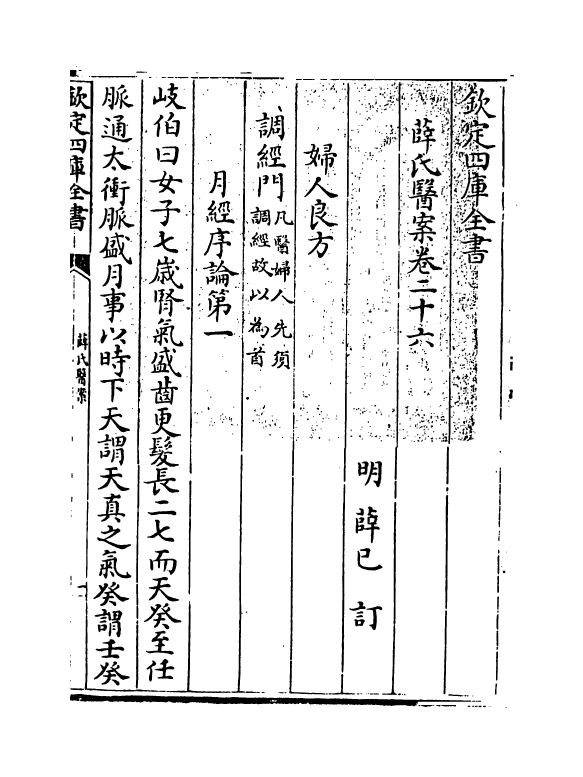 欽定四庫全書
薛氏醫案卷二十六
明 薛己 訂
婦人良方
調經門凡醫婦人先須調經故以為首
月經序論第一
岐伯曰女子七歲腎氣盛齒更髮長二七而天癸至任
脈通太衝脈盛月事以時下天謂天真之氣癸謂壬癸
欽定四庫全書
薛氏醫案